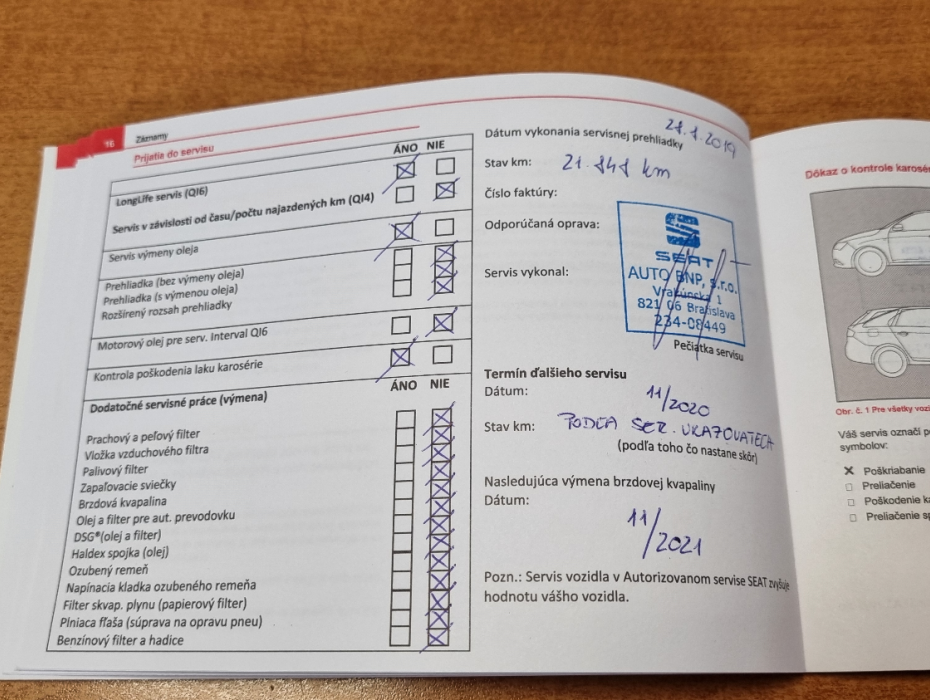 16
Záznamy
Prijatia do servisu
ÁNO NIE
LongLife servis (QI6)
Servis v závislosti od času/počtu najazdených km (QI4)
Servis výmeny oleja
Prehliadka (bez výmeny oleja)
Prehliadka (s výmenou oleja)
Rozšírený rozsah prehliadky
Motorový olej pre serv. Interval QI6
Kontrola poškodenia laku karosérie
Dodatočné servisné práce (výmena) ÁNO NIE
Prachový a peľový filter
Vložka vzduchového filtra
Palivový filter
Zapaľovacie sviečky
Brzdová kvapalina
Olej a filter pre aut. prevodovku
DSG®(olej a filter)
Haldex spojka (olej)
Ozubený remeň
Napínacia kladka ozubeného remeňa
Filter skvap. plynu (papierový filter)
Plniaca fľaša (súprava na opravu pneu)
Benzínový filter a hadice
Dátum vykonania servisnej prehliadky
Stav km: km
Číslo faktúry:
Odporúčaná oprava:
Servis vykonal:
SEAT
AUTO BNP, s.r.o.
Vrakúnska 1
821 06 Bratislava
234-08449
Pečiatka servisu
Termín ďalšieho servisu
Dátum: 11/2020
Stav km: PODĽA SER. UKAZOVATEĽA
(podľa toho čo nastane skôr)
Nasledujúca výmena brzdovej kvapaliny
Dátum:
11/2021
Pozn.: Servis vozidla v Autorizovanom servise SEAT zvyšuje
hodnotu vášho vozidla.
Dôkaz o kontrole
Obr. č. 1 Pre všetky
Váš servis označí
symbolov:
Poškriabanie
Preliačenie
Poškodenie
Preliačenie